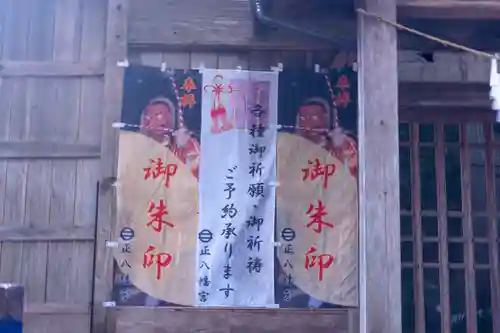 奉拝
御朱印
正八
各種御祈願・御祈祷
ご予約承ります
正八幡宮
奉拝
御朱印
正八幡宮